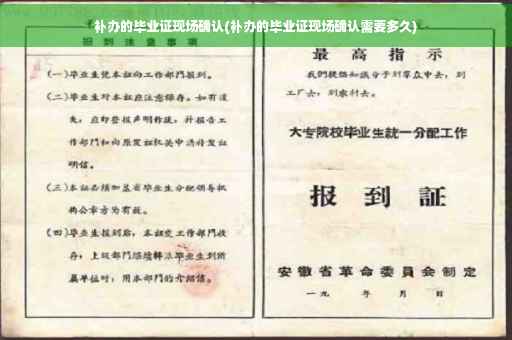 补办的毕业证现场确认(补办的毕业证现场确认需要多久)
报到注意事项
(一)毕业生凭本証向工作部門报到。
(二)毕业生对本証应注意保存。如有遺
失，应即登报声明作废，并报告工
作部門和向原发証机关申請补发証
明信。
(三)本証必須加盖省毕业生分配領导机
构公章方为有效。
(四)毕业生报到后，本証交工作部門收
存；上级部門
毕业生到所
属单位时，用本部門的介紹信。
最高指示
我們提倡知識分子到羣众中去，到
工厂去，到农村去。
大专院校毕业生統一分配工作
报到証
安徽省革命委員会制定
一九 年 月 日